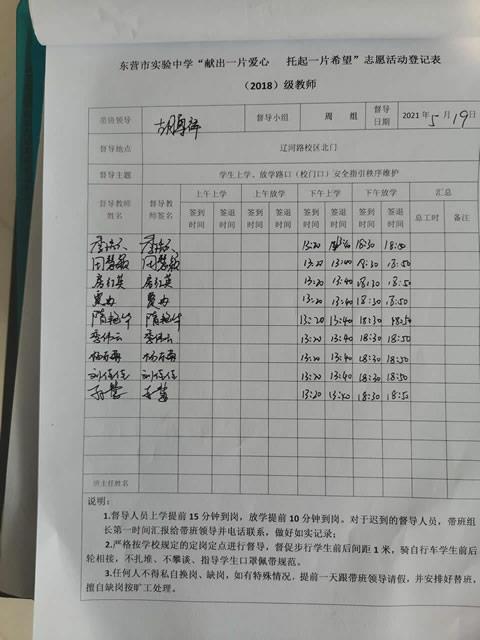 东营市实验中学“献出一片爱心 托起一片希望”志愿活动登记表
（2018）级教师
带班领导 督导小组 周 组 督导日期 2021年5月19日
督导地点 辽河路校区北门
督导主题 学生上学、放学路口（校门口）安全指引秩序维护
督导教师姓名 督导教师签名 上午上学 上午放学 下午上学 下午放学 汇总
签到时间 签退时间 签到时间 签退时间 签到时间 签退时间 签到时间 签退时间 总工时 备注
13:20 13:40 18:30 18:50
田梦敏 田梦敏 13:20 13:40 18:30 18:50
房红英 房红英 13:20 13:40 18:30 18:50
13:20 13:40 18:30 18:50
隋艳华 隋艳华 13:20 13:40 18:30 18:50
李伟云 李伟云 13:20 13:40 18:30 18:50
13:20 13:40 18:30 18:50
刘佳佳 刘佳佳 13:20 13:40 18:30 18:50
孙慧 孙慧 13:20 13:40 18:30 18:50
班主任姓名
说明：
1.督导人员上学提前15分钟到岗，放学提前10分钟到岗。对于迟到的督导人员，带班组
长第一时间汇报给带班领导并电话联系，做好如实记录；
2.严格按学校规定的定岗定点进行督导，督促步行学生前后间距1米，骑自行车学生前后
轮相接，不扎堆、不攀谈、指导学生口罩佩带规范。
3.任何人不得私自换岗、缺岗，如有特殊情况，提前一天跟带班领导请假，并安排好替班，
擅自缺岗按旷工处理。